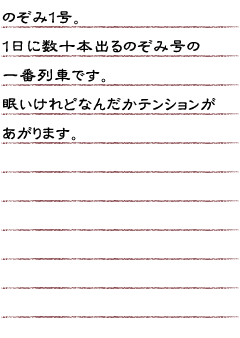 のぞみ1号。
1日に数十本出るのぞみ号の
一番列車です。
眠いけれどなんだかテンションが
あがります。